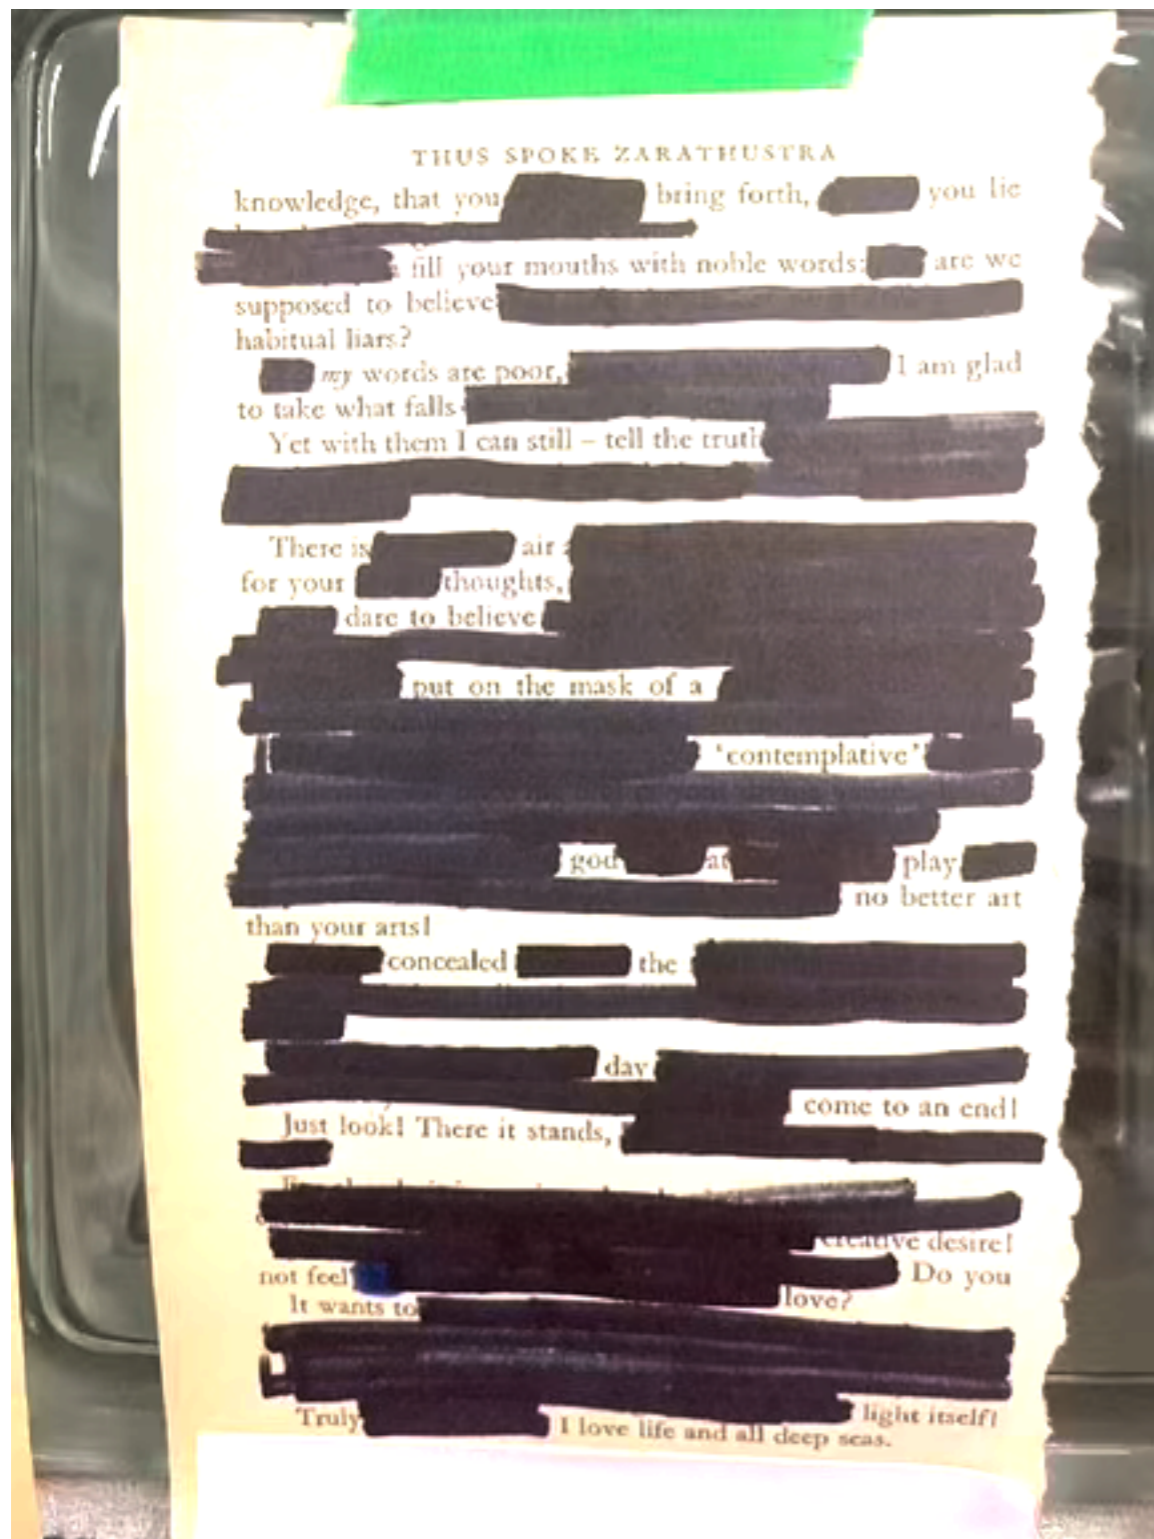 THUS SPOKE ZARATHUSTRA
knowledge, that you bring forth, you lie
fill your mouths with noble words: are we
supposed to believe
habitual liars?
my words are poor, I am glad
to take what falls
Yet with them I can still – tell the truth
There is air
for your thoughts,
dare to believe
put on the mask of a
'contemplative'
god at play
no better art
than your arts!
concealed the
day
come to an end!
Just look! There it stands,
creative desire!
not feel Do you
love?
It wants to
light itself!
Truly I love life and all deep seas.